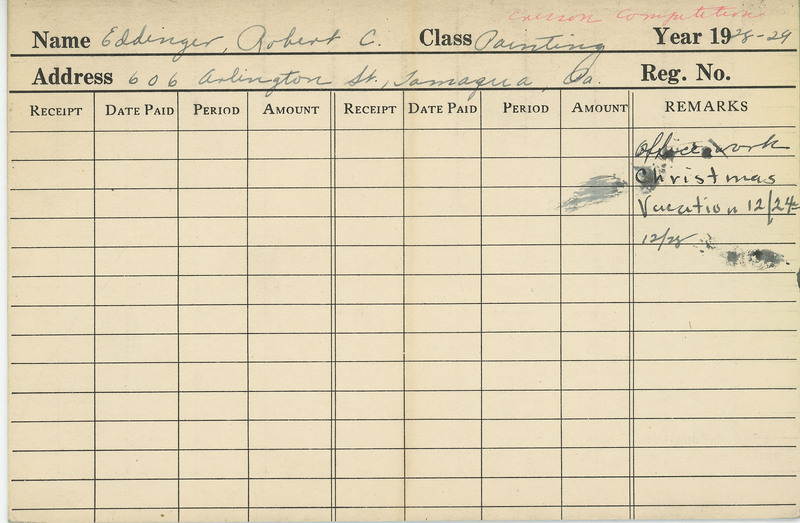 Cresson Competition
Name Eddinger, Robert C. Class Painting Year 1928-29
Address 606 Arlington St., Tamaqua, Pa. Reg. No.
RECEIPT DATE PAID PERIOD AMOUNT RECEIPT DATE PAID PERIOD AMOUNT REMARKS
Office work
Christmas
Vacation 12/24-
12/28